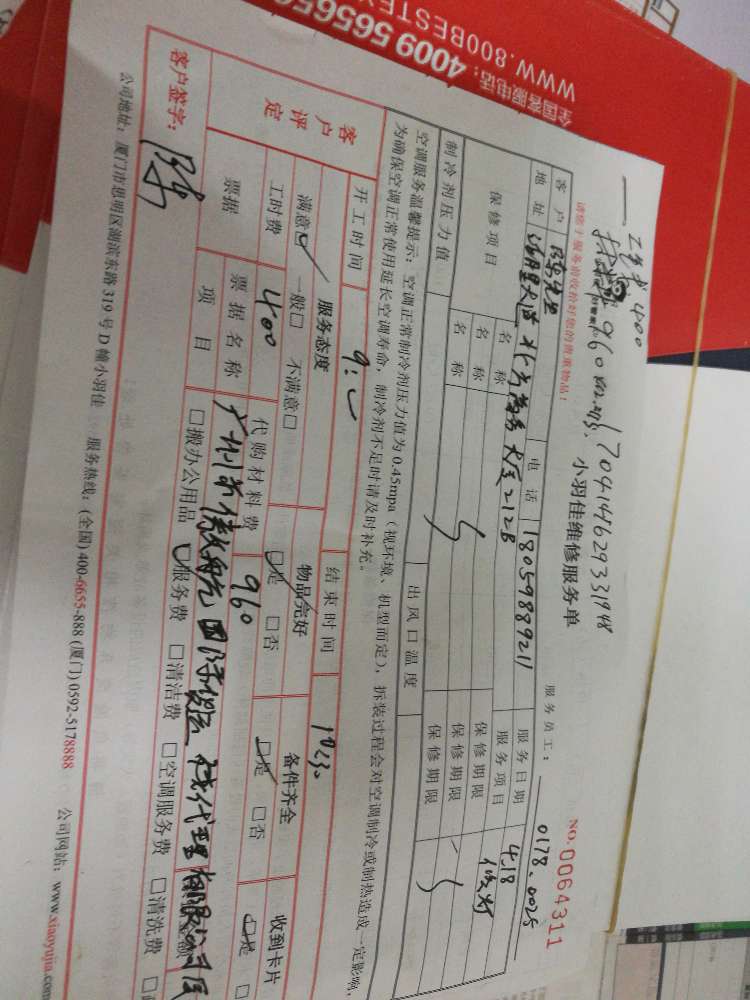 全国客服电话：4009 565656
WWW.800BESTEX
工费 400
960
17041486293331948
请您于服务前收拾好您的贵重物品！
小羽佳维修服务单
NO.0064311
服务员工：0178.0025
客户 陈先生 电话 18059889211 服务日期 4.18
地址 湖里大道 商务大厦212B 服务项目 修灯
保修项目 名称 保修期限
名称 保修期限
名称 保修期限
制冷剂压力值 出风口温度
空调服务温馨提示：空调正常制冷剂压力值为0.45mpa（视环境、机型而定），拆装过程会对空调制冷或制热造成一定影响，
为确保空调正常使用延长空调寿命，制冷剂不足时请及时补充。
开工时间 结束时间 10:30
客户评定 服务态度 物品完好 备件齐全 收到卡片
满意☑ 一般□ 不满意□ ☑是 □否 ☑是 □否 ☑是 □
工时费 400 代购材料费 960
票据 票据名称 广州市 航国际货运代理有限公司厦
项目 □搬办公用品 ☑服务费 □清洁费 □空调服务费 □清洗费
客户签字：陈
公司地址：厦门市思明区湖滨东路319号D幢小羽佳 服务热线：(全国)400-6655-888 (厦门)0592-5178888 公司网站：www.xiaoyujia.com